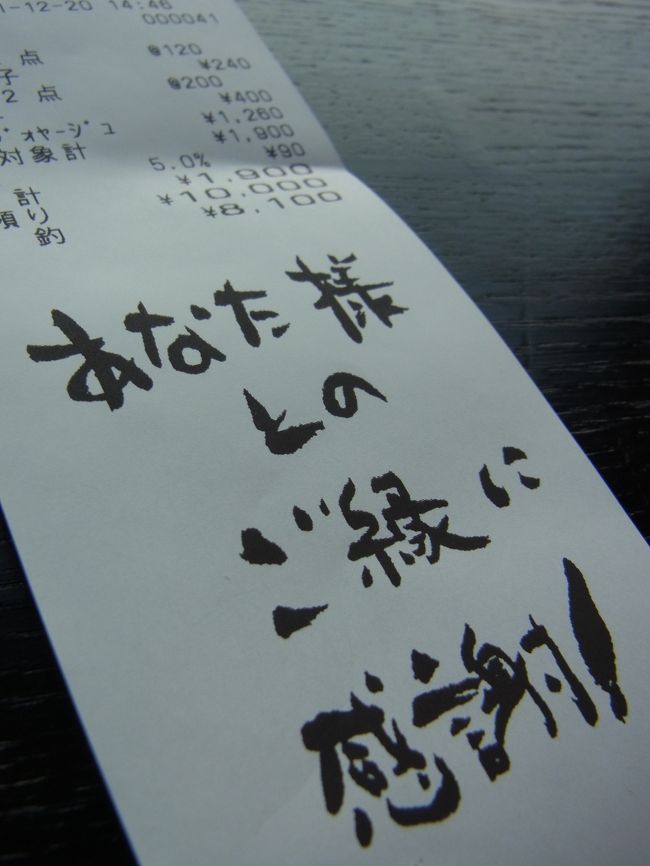 1-12-20 14:46
000041
点 @120
¥240
子 @200
2 点 ¥400
¥1,260
ヴォヤージュ ¥1,900
対象計 5.0% ¥90
計 ¥1,900
預り ¥10,000
釣 ¥8,100
あなた様
との
ご縁に
感謝